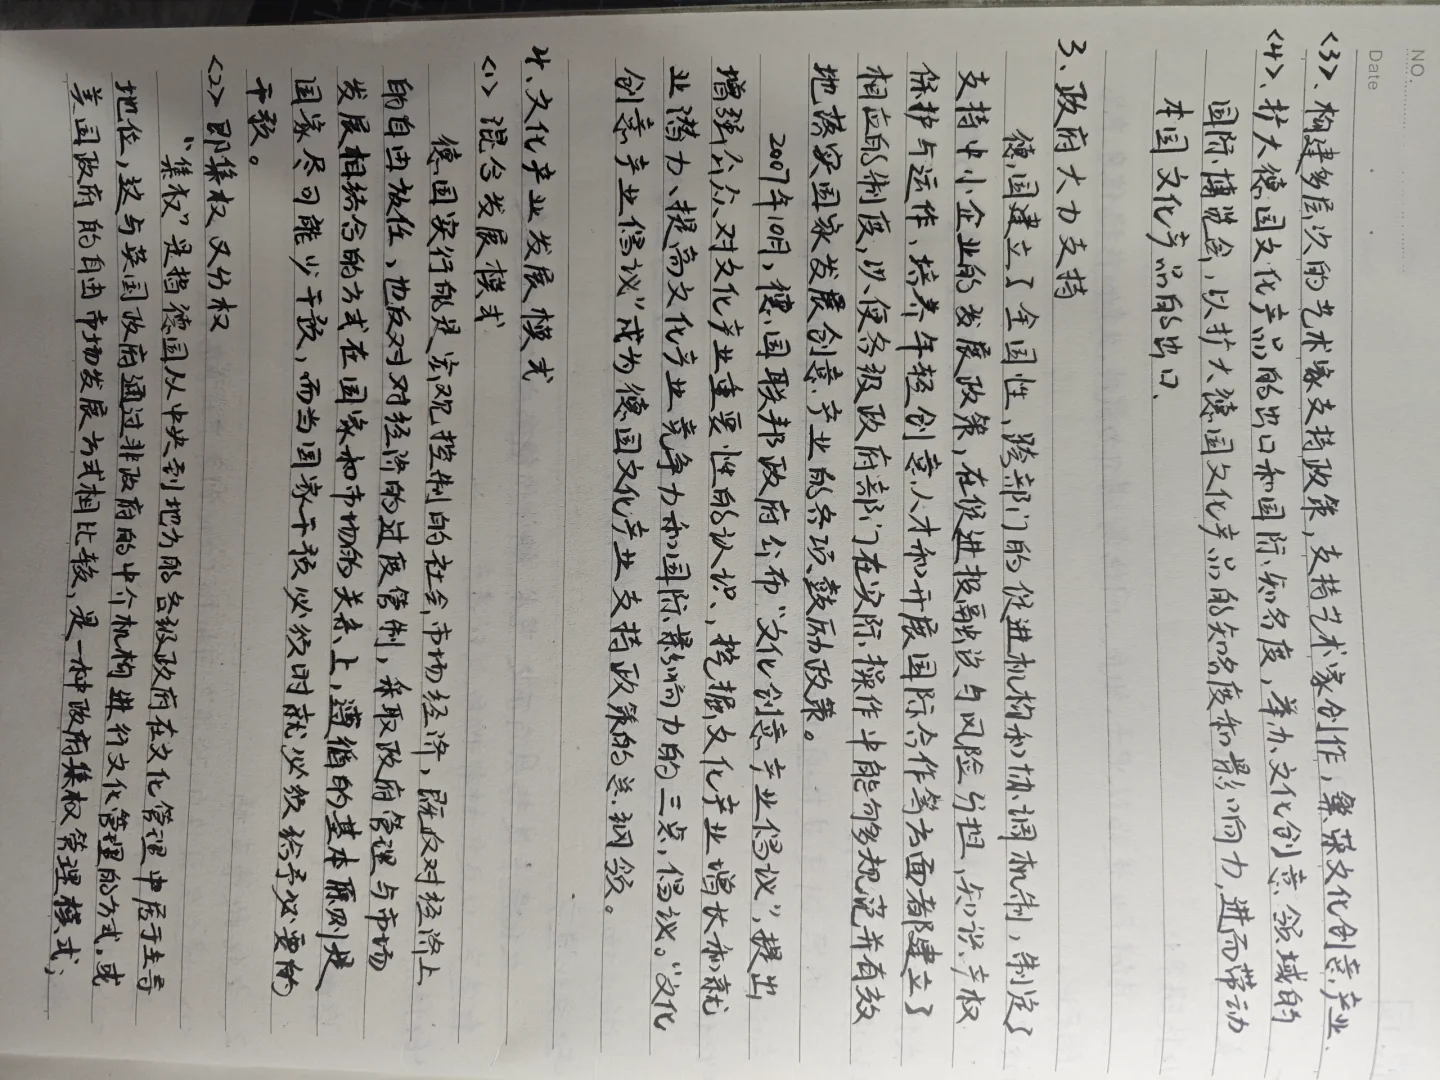 NO.
Date
<3>、构建多层次的艺术家支持政策，支持艺术家创作，繁荣文化创意产业、
<4>、扩大德国文化产品的出口和国际知名度，举办文化创意领域的
国际博览会，以扩大德国文化产品的知名度和影响力，进而带动
本国文化产品的出口、
3、政府大力支持
德国建立了全国性、跨部门的促进机构和协调机制，制定了
支持中小企业的发展政策，在促进投融资与风险分担、知识产权
保护与运作、培养年轻创意人才和开展国际合作等方面都建立了
相应的制度，以便各级政府部门在实际操作中能够规范并有效
地落实国家发展创意产业的各项鼓励政策。
2007年10月，德国联邦政府公布“文化创意产业倡议”，提出
增强公众对文化产业重要性的认识、挖掘文化产业增长和就
业潜力、提高文化产业竞争力和国际影响力的三点倡议。“文化
创意产业倡议”成为德国文化产业支持政策的总纲领。
4、文化产业发展模式
<1>混合发展模式
德国实行的是宏观控制的社会市场经济，既反对经济上
的自由放任，也反对对经济的过度管制，采取政府管理与市场
发展相结合的方式在国家和市场的关系上，遵循的基本原则是
国家尽可能少干预，而当国家干预必须时就必须给予必要的
干预。
<2>即集权又分权
“集权”是指德国从中央到地方的各级政府在文化管理中居于主导
地位，这与英国政府通过非政府的中介机构进行文化管理的方式，或
美国政府的自由市场发展方式相比较，是一种政府集权管理模式；